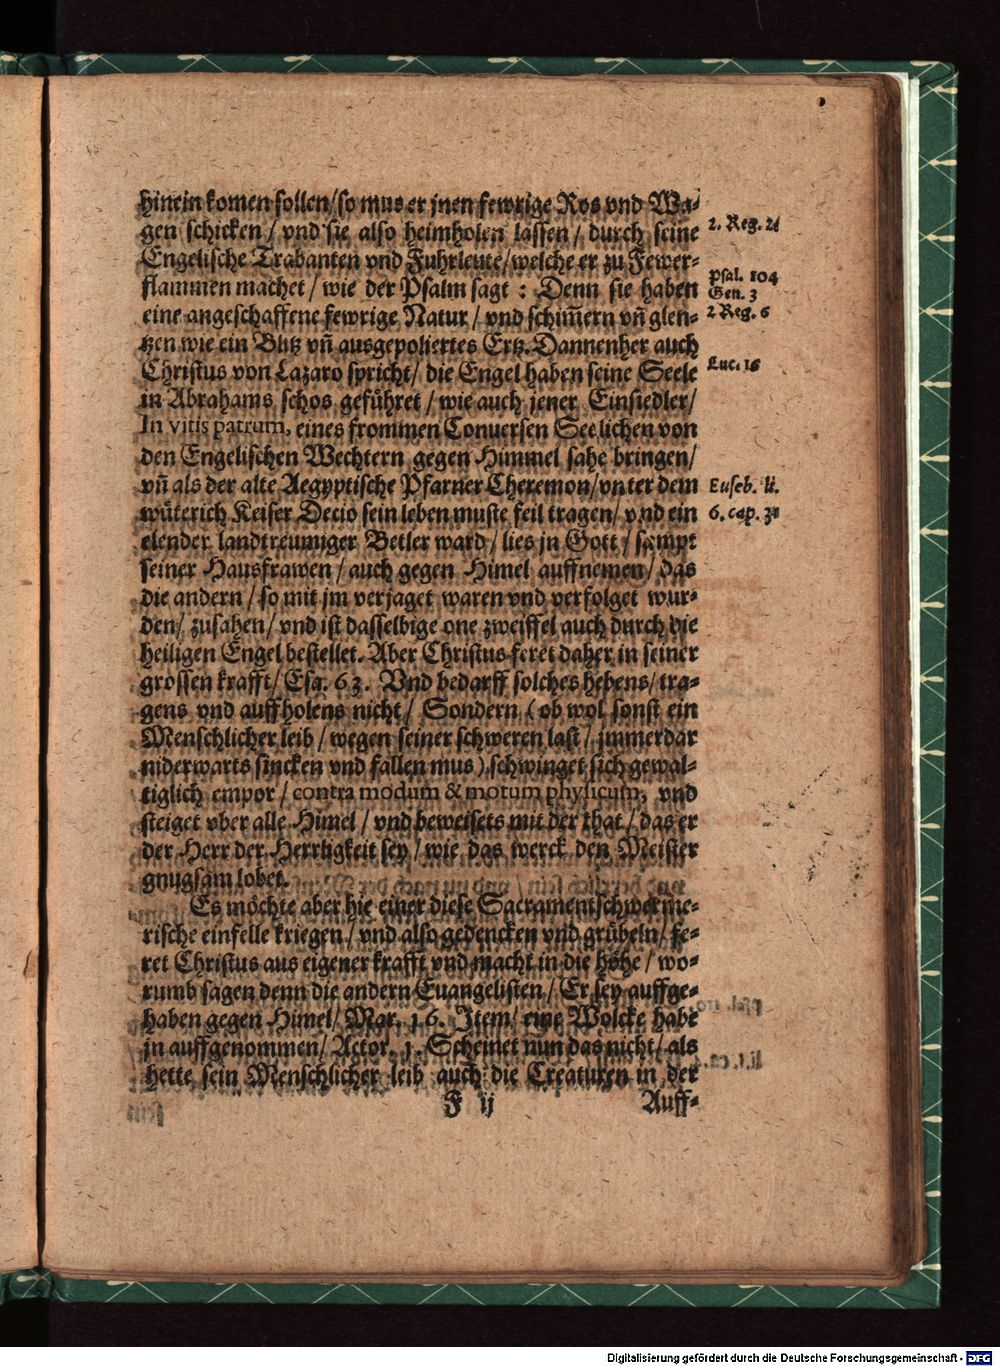 hinein komen sollen/so mus er jnen fewrige Ros vnd Wa-
gen schicken / vnd sie also heimholen lassen / durch seine
2. Reg. 2
Engelische Trabanten vnd Fuhrleute/welche er zu Fewer-
flammen machet / wie der Psalm sagt : Denn sie haben
Psal. 104
Gen. 3
eine angeschaffene fewrige Natur / vnd schim̃ern vñ glen-
2 Reg. 6
tzen wie ein Blitz vñ ausgepoliertes Ertz. Dannenher auch
Christus von Lazaro spricht/ die Engel haben seine Seele
Luc. 16
in Abrahams schos geführet / wie auch jener Einsiedler/
In vitis patrum, eines frommen Conuersen Seelichen von
den Engelischen Wechtern gegen Himmel sahe bringen/
vñ als der alte Aegyptische Pfarner Cheremon/vnter dem
Euseb. li.
wüterich Keiser Decio sein leben muste feil tragen/ vnd ein
6. cap.
elender landtreumiger Betler ward / lies jn Gott / sampt
seiner Hausfrawen / auch gegen Himel auffnemen / das
die andern / so mit jm verjaget waren vnd verfolget wur-
den/ zusahen/ vnd ist dasselbige one zweiffel auch durch die
heiligen Engel bestellet. Aber Christus feret daher in seiner
grossen krafft/ Esa. 63. Vnd bedarff solches hebens/ tra-
gens vnd auffholens nicht/ Sondern ( ob wol sonst ein
Menschlicher leib / wegen seiner schweren last / jmmerdar
niderwarts sincken vnd fallen mus ) schwinget sich gewal-
tiglich empor / contra modum & motum physicum, vnd
steiget vber alle Himel / vnd beweisets mit der that / das er
der Herr der Herrligkeit sey / wie das werck den Meister
gnugsam lobet.
Es möchte aber hie einer diese Sacramentschwerme-
rische einfelle kriegen / vnd also gedencken vnd grübeln/ fe-
ret Christus aus eigener krafft vnd macht in die höhe / wo-
rumb sagen denn die andern Euangelisten / Er sey auffge-
haben gegen Himel/ Mar. 16. Item/ eine Wolcke habe
jn auffgenommen/ Actor. 1. Scheinet nun das nicht/ als
hette sein Menschlicher leib auch die Creaturen in der
F ij
Auff-
Digitalisierung gefördert durch die Deutsche Forschungsgemeinschaft - DFG